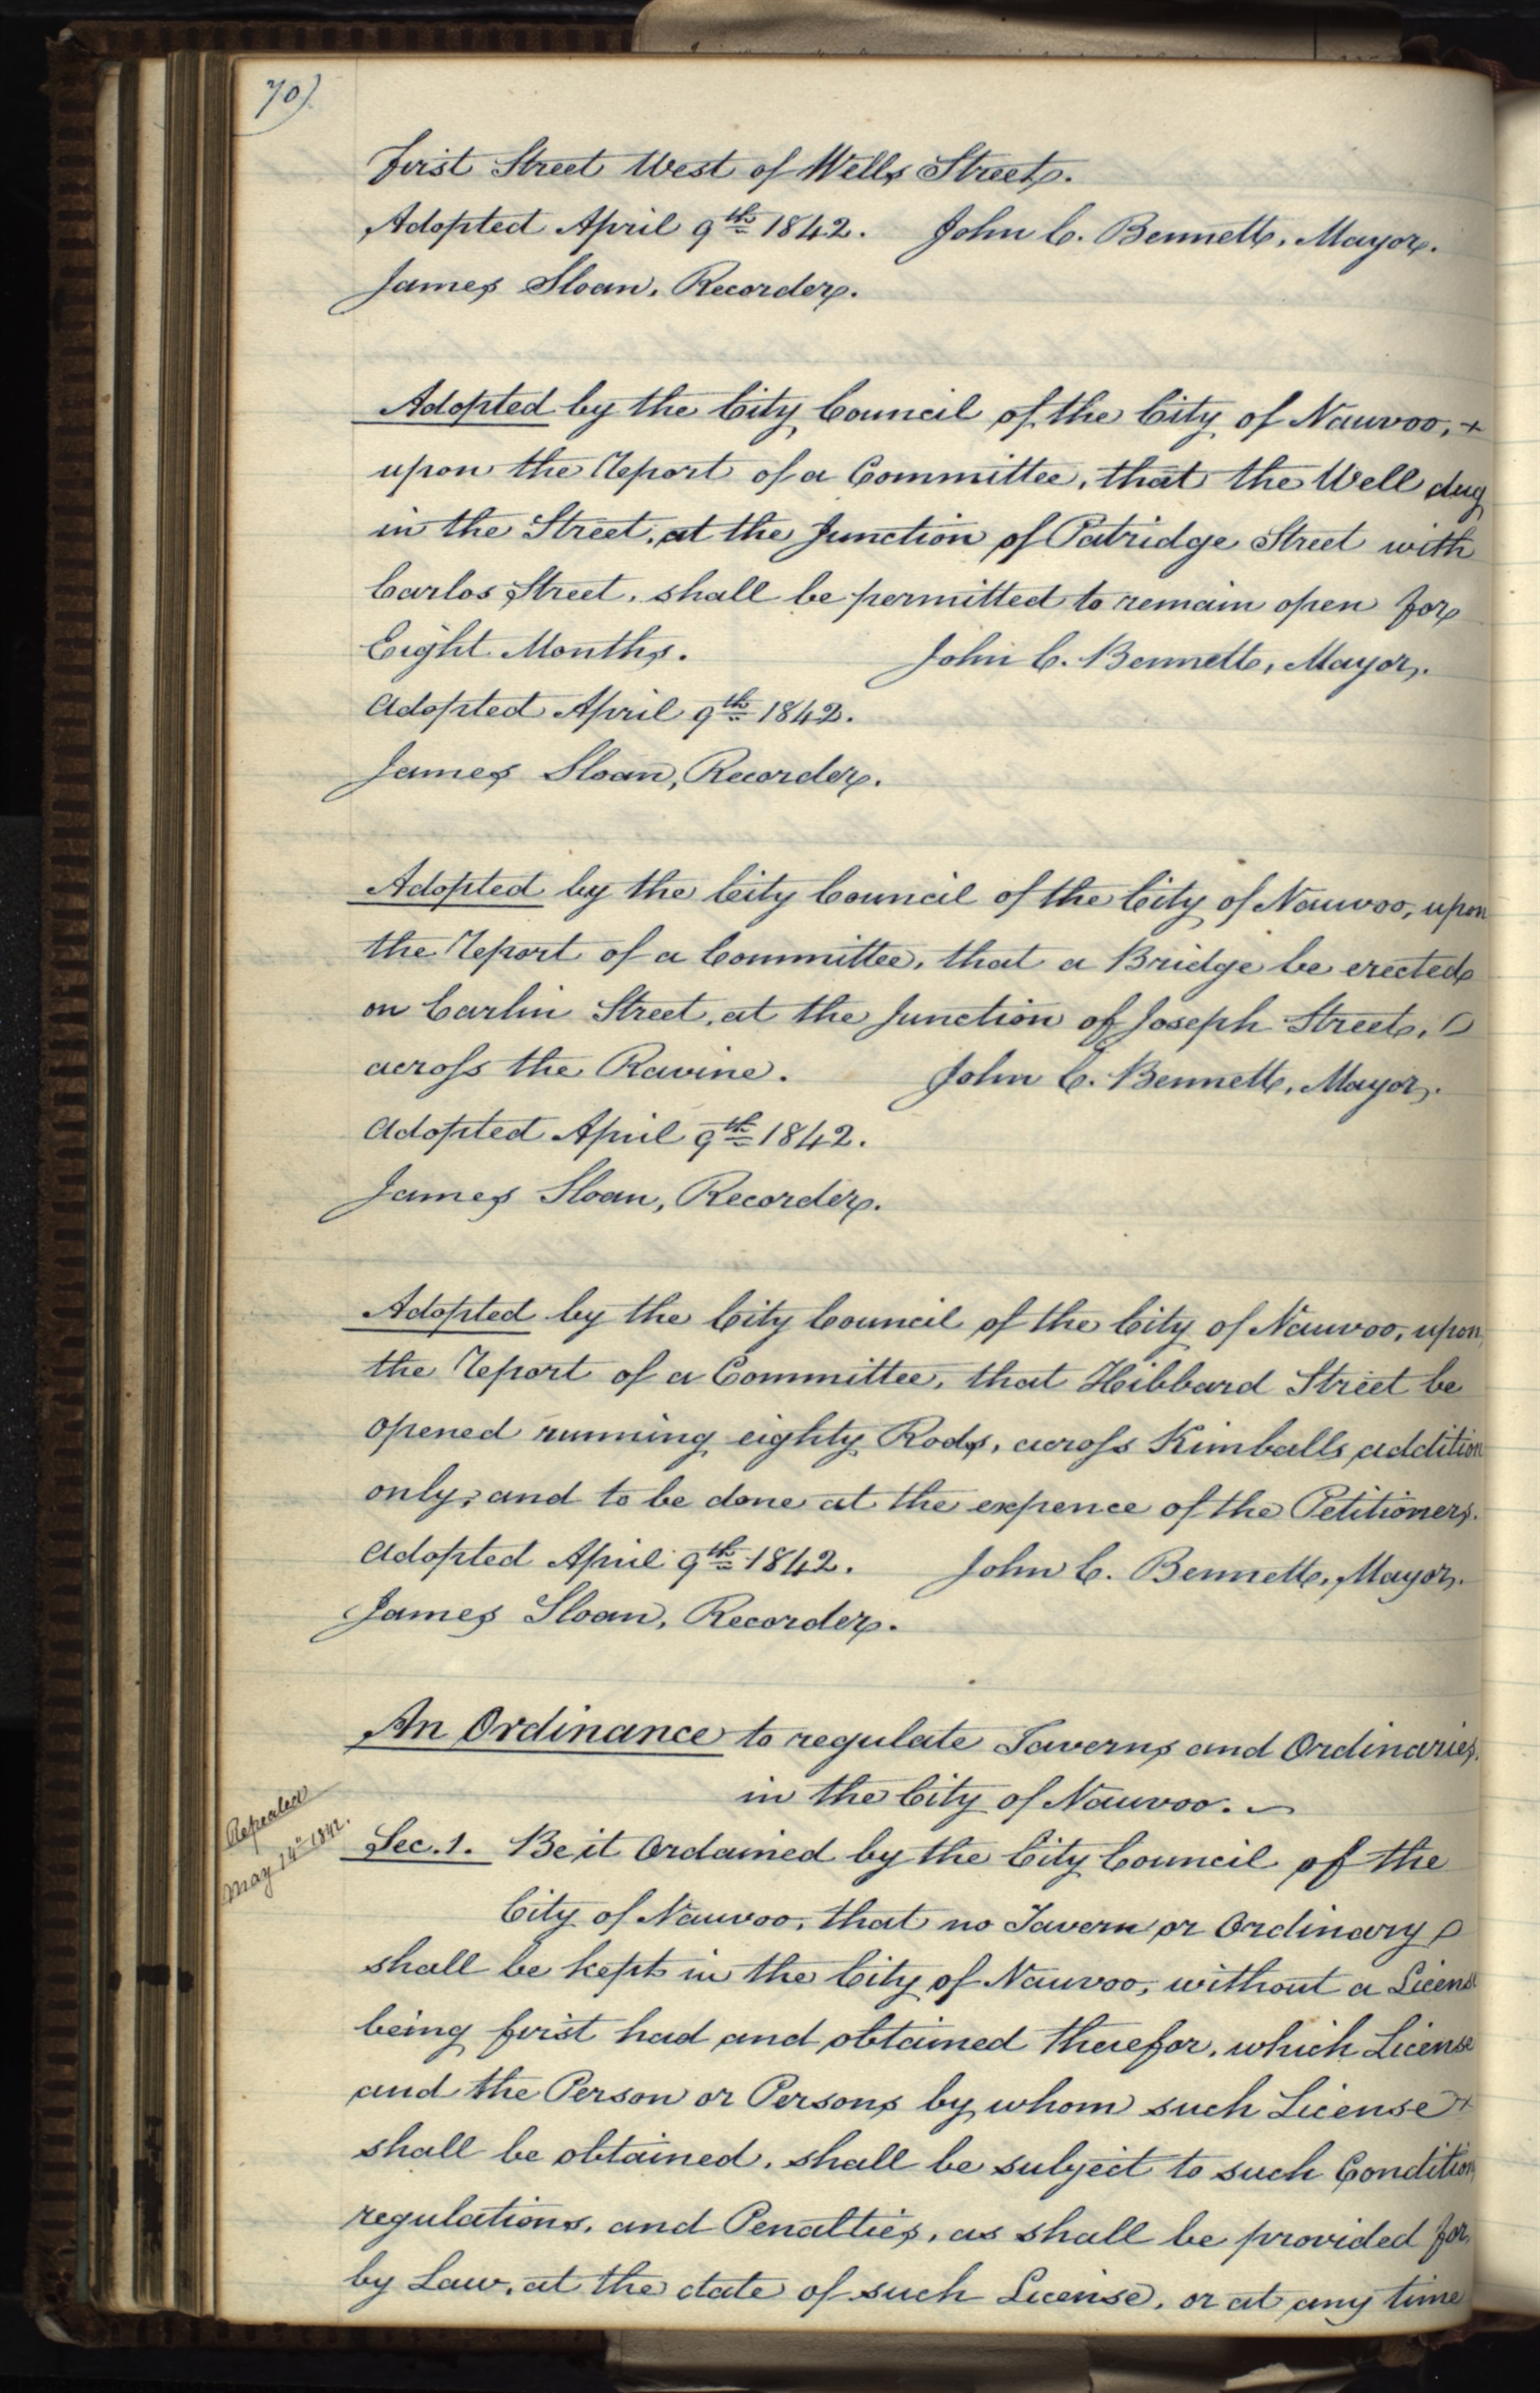 70)
First Street West of Wells Street.
Adopted April 9th 1842. John C. Bennett, Mayor.
James Sloan, Recorder.
Adopted by the City Council of the City of Nauvoo, +
upon the Report of a Committee, that the Well dug
in the Street, at the Junction of Patridge Street with
Carlos Street, shall be permitted to remain open for
Eight Months. John C. Bennett, Mayor.
Adopted April 9th 1842.
James Sloan, Recorder.
Adopted by the City Council of the City of Nauvoo, upon
the Report of a Committee, that a Bridge be erected
on Carlin Street, at the Junction of Joseph Street,
across the Ravine. John C. Bennett, Mayor.
Adopted April 9th 1842.
James Sloan, Recorder.
Adopted by the City Council of the City of Nauvoo, upon
the Report of a Committee, that Hibbard Street be
opened running eighty Rods, across Kimballs addition
only, and to be done at the expence of the Petitioners.
Adopted April 9th 1842. John C. Bennett, Mayor.
James Sloan, Recorder.
An Ordinance to regulate Taverns and Ordinaries,
in the City of Nauvoo.
Repealed
May 14th 1842.
Sec. 1. Be it Ordained by the City Council of the
City of Nauvoo, that no Tavern or Ordinary
shall be kept in the City of Nauvoo, without a License
being first had and obtained therefor, which License
and the Person or Persons by whom such License +
shall be obtained, shall be subject to such Condition
regulations, and Penalties, as shall be provided for,
by Law, at the date of such License, or at any time